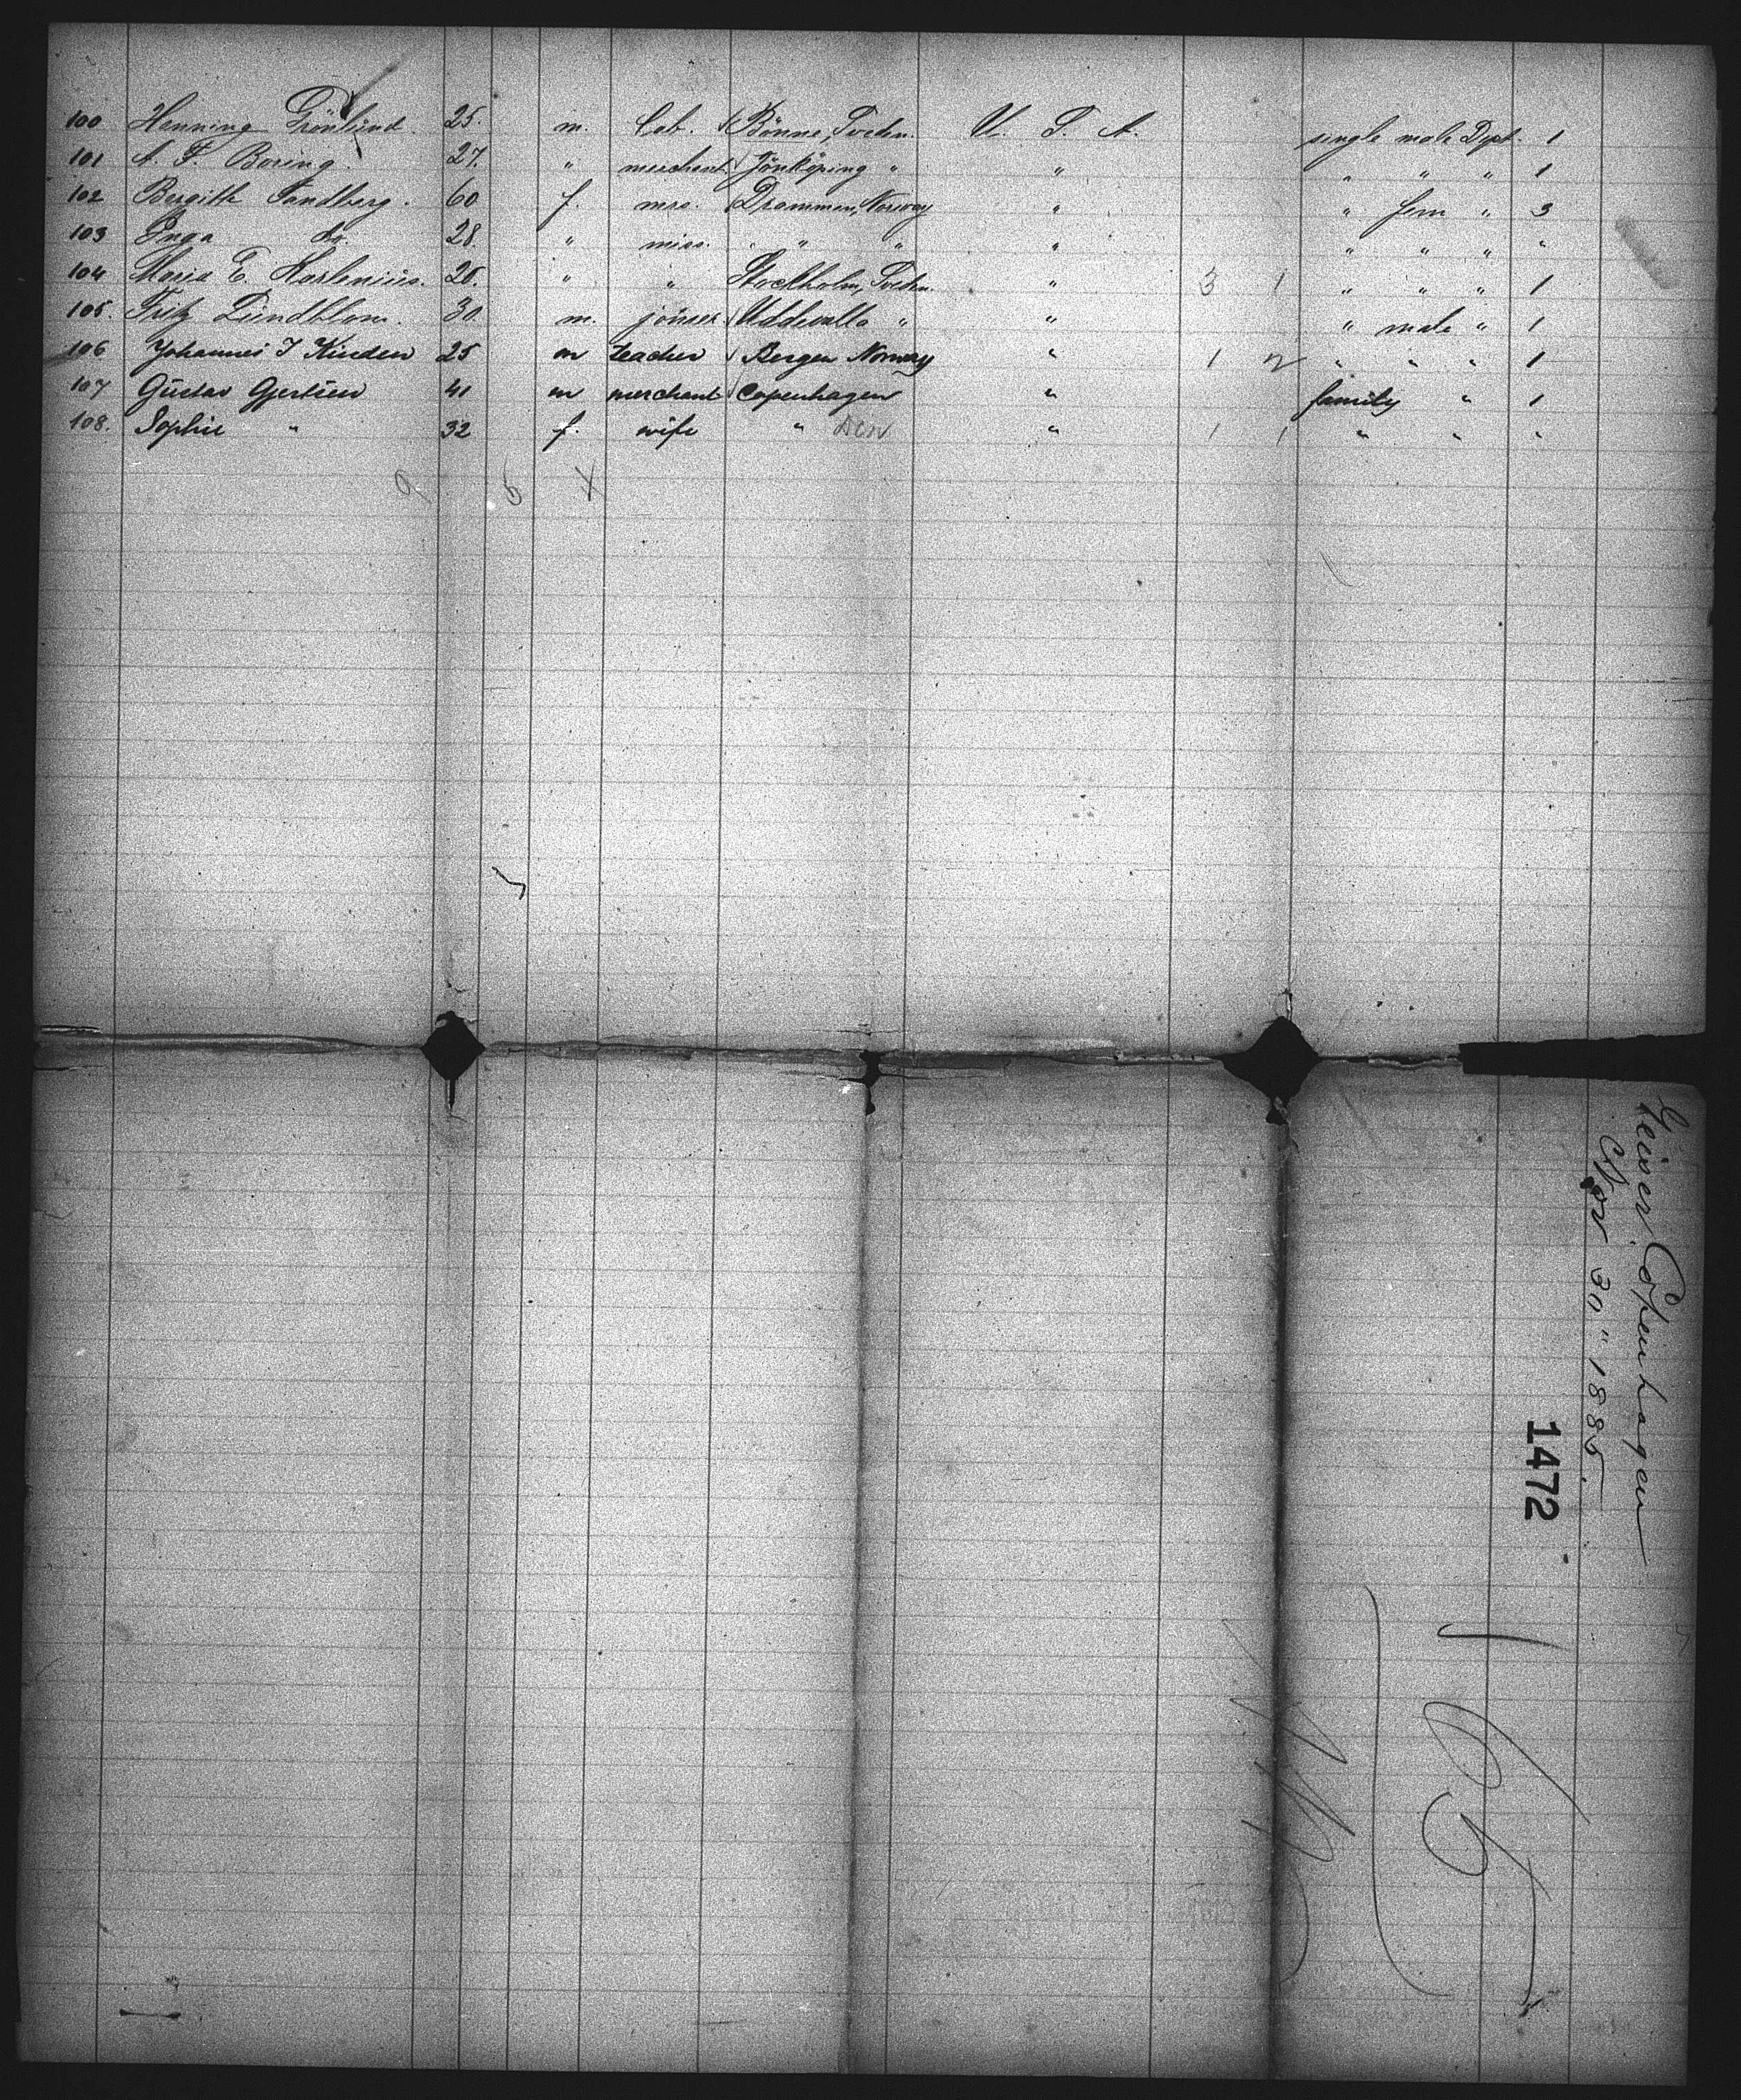 100 Henning Grönlund. 25. m. lab. Rönne, Sveden. U. S. A. single male Dept. 1
101 A. F. Boring. 27. " merchant. Jönköping " " " " " 1
102 Bergitte Sandberg. 60 f. mrs. Drammen, Norway " " fem " 3
103 Inga do. 28. " miss. " " " " " " "
104 Maria E. Karlenius. 26. " " Stockholm, Sveden. " 3 1 " " " 1
105. Fritz Lundblom. 30. m. joiner Uddevalla " " " male " 1
106 Johannes J Kinden 25 m teacher Bergen Norway " 1 2 " " " 1
107 Gustav Gjertsen 41 m merchant Copenhagen " family " 1
108. Sophie " 32 f. wife " Den " 1 1 " " "
9 5 4
Geiser Copenhagen
Nov 30" 1885
1472